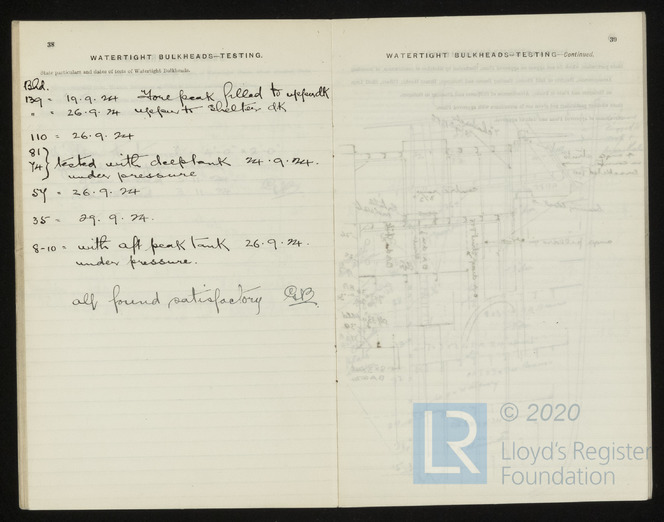 38
WATERTIGHT BULKHEADS—TESTING.
State particulars and dates of tests of Watertight Bulkheads.
Bhd.
139 = 19.9.24 Fore peak filled to upperdk
" = 26.9.24 upper to Shelter dk
110 = 26.9.24
81
74 } tested with deeptank 24.9.24.
under pressure
57 = 26.9.24
35 = 29.9.24.
8-10 = with aft peak tank 26.9.24.
under pressure.
all found satisfactory GB
39
WATERTIGHT BULKHEADS—TESTING—Continued.
LR
© 2020
Lloyd's Register
Foundation